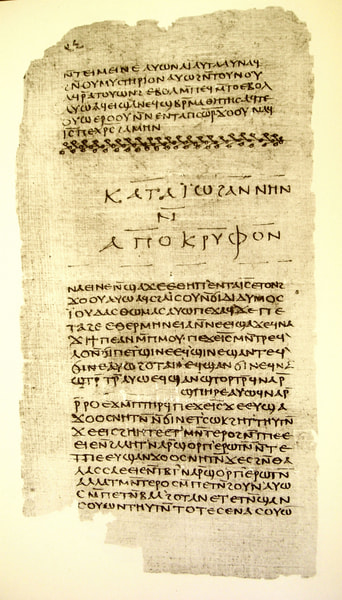 ⲛ̄ⲧⲉⲓⲙⲉⲓⲛⲉ ⲁⲩⲱ ⲛⲁⲓ̈ ⲁⲩⲧⲁⲁⲩ ⲛⲁϥ
ϩⲛ̄ⲟⲩⲙⲩⲥⲧⲏⲣⲓⲟⲛ ⲁⲩⲱ ⲛ̄ⲧⲟⲩⲛⲟⲩ
ⲁϥⲣ̄ⲁⲧⲟⲩⲱⲛϩ ⲉⲃⲟⲗ ⲙ̄ⲡⲉϥⲙ̄ⲧⲟ ⲉⲃⲟⲗ
ⲁⲩⲱ ⲁϥⲉⲓ ϣⲁ ⲛⲉϥϣⲃⲣ̄ⲙⲁⲑⲏⲧⲏⲥ ⲁϥⲧⲉ
ⲟⲩⲱ ⲉⲣⲟⲟⲩ ⲛ̄ⲛⲉⲛⲧⲁⲡⲥⲱ̅ⲣ̅ ϫⲟⲟⲩ ⲛⲁϥ
ⲓ̅ⲥ̅ ⲡⲉⲭ̅ⲣ̅ⲥ̅ ϩⲁⲙⲏⲛ
ⲕⲁⲧⲁ ⲓ̈ⲱϩⲁⲛⲛⲏⲛ
ⲛ̄
ⲁⲡⲟⲕⲣⲩⲫⲟⲛ
ⲛⲁⲉⲓ ⲛⲉ ⲛ̄ϣⲁϫⲉ ⲉⲑⲏⲡ ⲉⲛⲧⲁⲓ̅ⲥ̅ ⲉⲧⲟⲛϩ
ϫⲟⲟⲩ ⲁⲩⲱ ⲁϥⲥϩⲁⲓ̈ⲥⲟⲩ ⲛ̄ϭⲓ ⲇⲓⲇⲩⲙⲟⲥ
ⲓ̈ⲟⲩⲇⲁⲥ ⲑⲱⲙⲁⲥ ⲁⲩⲱ ⲡⲉϫⲁϥ ϫⲉ ⲡⲉ
ⲧⲁϩⲉ ⲉⲑⲉⲣⲙⲏⲛⲉⲓⲁ ⲛ̄ⲛⲉⲉⲓϣⲁϫⲉ ϥⲛⲁ
ϫⲓ ϯⲡⲉ ⲁⲛ ⲙ̄ⲡⲙⲟⲩ ⲡⲉϫⲉ ⲓ̅ⲥ̅ ⲙⲛ̄ⲧⲣⲉϥ
ⲗⲟ ⲛ̄ϭⲓ ⲡⲉⲧϣⲓⲛⲉ ⲉϥϣⲓⲛⲉ ϣⲁⲛⲧⲉϥ
ϭⲓⲛⲉ ⲁⲩⲱ ϩⲟⲧⲁⲛ ⲉϥϣⲁⲛϭⲓⲛⲉ ϥⲛⲁ
ϣⲧⲣ̄ⲧⲣ̄ ⲁⲩⲱ ⲉϥϣⲁⲛϣⲧⲟⲣⲧⲣ̄ ϥⲛⲁⲣ̄
ϣⲡⲏⲣⲉ ⲁⲩⲱ ϥⲛⲁⲣ̄
ⲣ̄ⲣⲟ ⲉϫⲙ̄ ⲡⲧⲏⲣϥ ⲡⲉϫⲉ ⲓ̅ⲥ̅ ϫⲉ ⲉⲩϣⲁ
ϫⲟⲟⲥ ⲛⲏⲧⲛ̄ ⲛ̄ϭⲓ ⲛⲉⲧⲥⲱⲕ ϩⲏⲧⲧⲏⲩⲧⲛ̄
ϫⲉ ⲉⲓⲥϩⲏⲏⲧⲉ ⲉⲧⲙⲛ̄ⲧⲉⲣⲟ ϩⲛ̄ ⲧⲡⲉ ⲉ
ⲉⲓⲉ ⲛ̄ϩⲁⲗⲏⲧ ⲛⲁⲣ̄ϣⲟⲣⲡ ⲉⲣⲱⲧⲛ̄ ⲛ̄ⲧⲉ
ⲧⲡⲉ ⲉⲩϣⲁⲛϫⲟⲟⲥ ⲛⲏⲧⲛ̄ ϫⲉ ⲥϩⲛ̄ ⲑⲁ
ⲗⲁⲥⲥⲁ ⲉⲉⲓⲉ ⲛ̄ⲧⲃⲧ ⲛⲁⲣ̄ϣⲟⲣⲡ ⲉⲣⲱⲧⲛ̄
ⲁⲗⲗⲁ ⲧⲙⲛ̄ⲧⲉⲣⲟ ⲥⲙ̄ⲡⲉⲧⲛ̄ϩⲟⲩⲛ ⲁⲩⲱ
ⲥⲙ̄ⲡⲉⲧⲛ̄ⲃⲁⲗ ϩⲟⲧⲁⲛ ⲉⲧⲉⲧⲛ̄ϣⲁⲛ
ⲥⲟⲩⲱⲛ ⲧⲏⲩⲧⲛ̄ ⲧⲟⲧⲉ ⲥⲉⲛⲁⲥⲟⲩⲱ